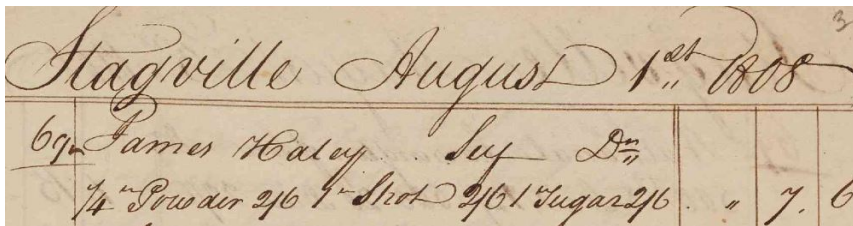 3
Stagville August 1st 1808
69 James Haley Sey Dr
1/4 " Powder 2/6 1 " Shot 2/6 1 Sugar 2/6 " 7. 6